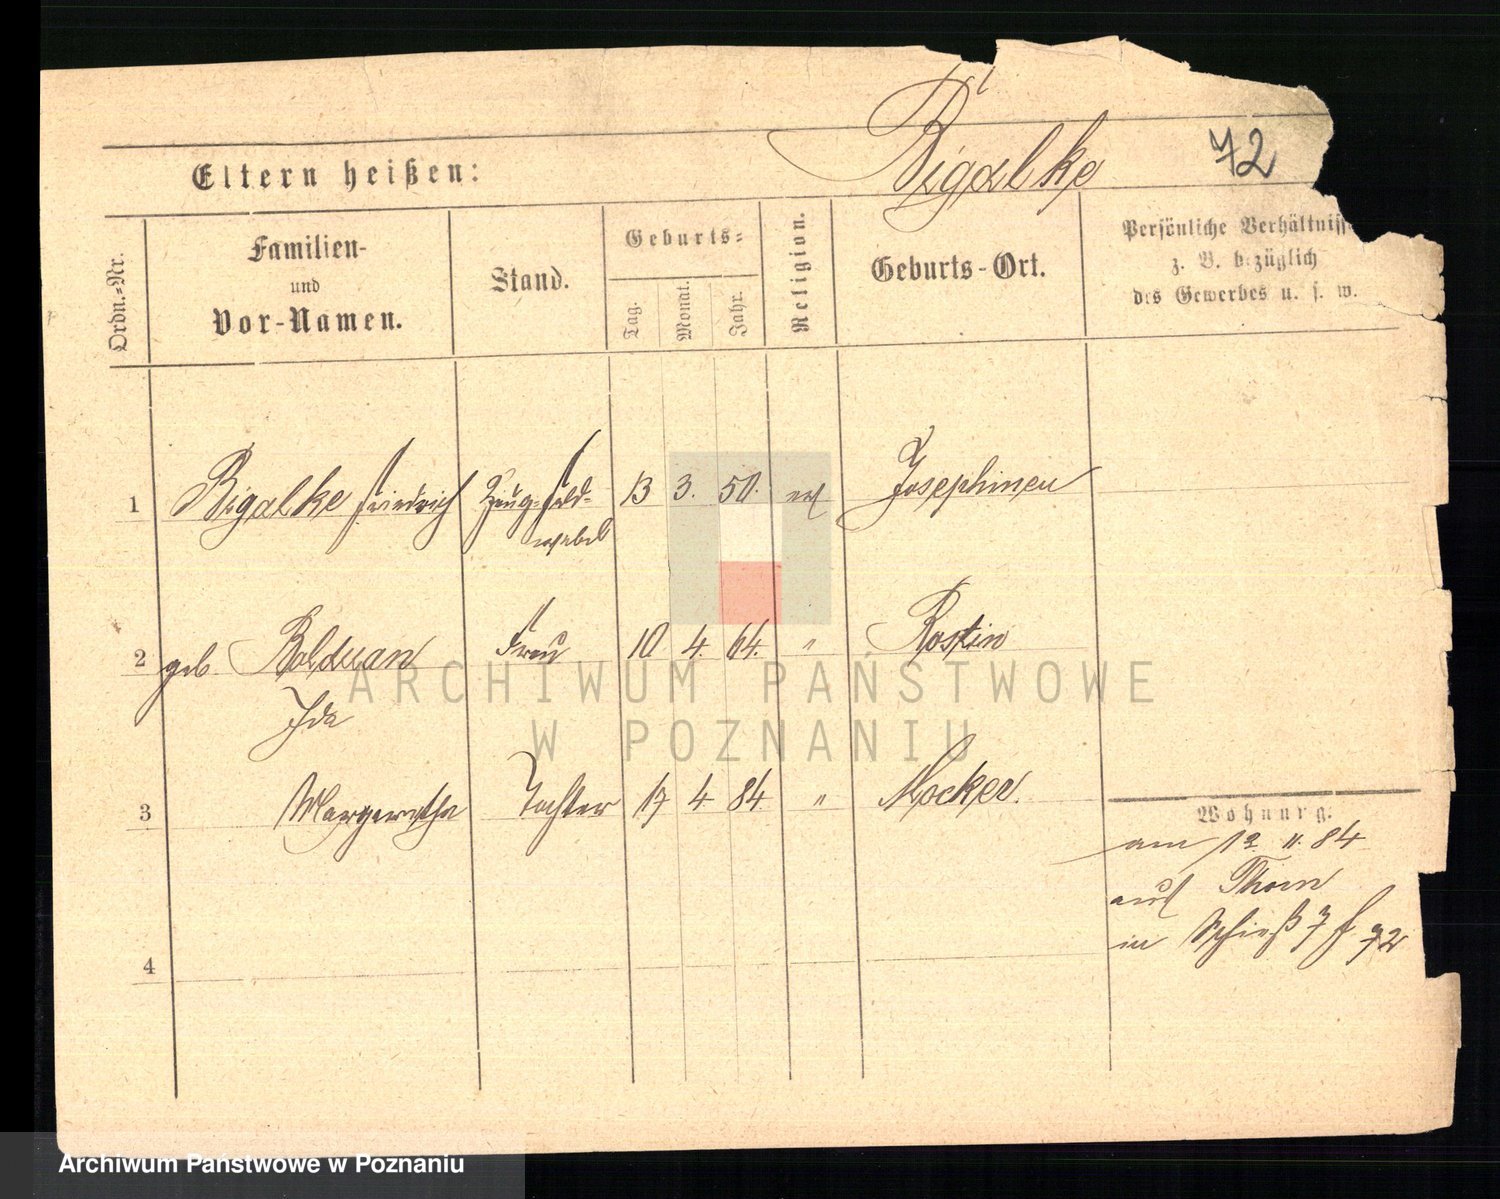 Bigalke 72
Eltern heißen:
Ordn.-Nr.
Familien-
und
Vor-Namen.
Stand.
Geburts-
Tag.
Monat.
Jahr.
Religion.
Geburts-Ort.
Persönliche Verhältniss
z. B. bezüglich
des Gewerbes u. s. w.
1 Bigalke Friedrich Zeug-Feld- 13 3. 50. ev Josephinen
webel
2 geb Bolduan Frau 10 4. 64. " Rostin
Ida
3 Margaretha Tochter 17 4 84 " Mocker.
Wohnung.
am 12. 11. 84
aus Thorn
in Schieß 7 f 72
4
ARCHIWUM PAŃSTWOWE
W POZNANIU
Archiwum Państwowe w Poznaniu